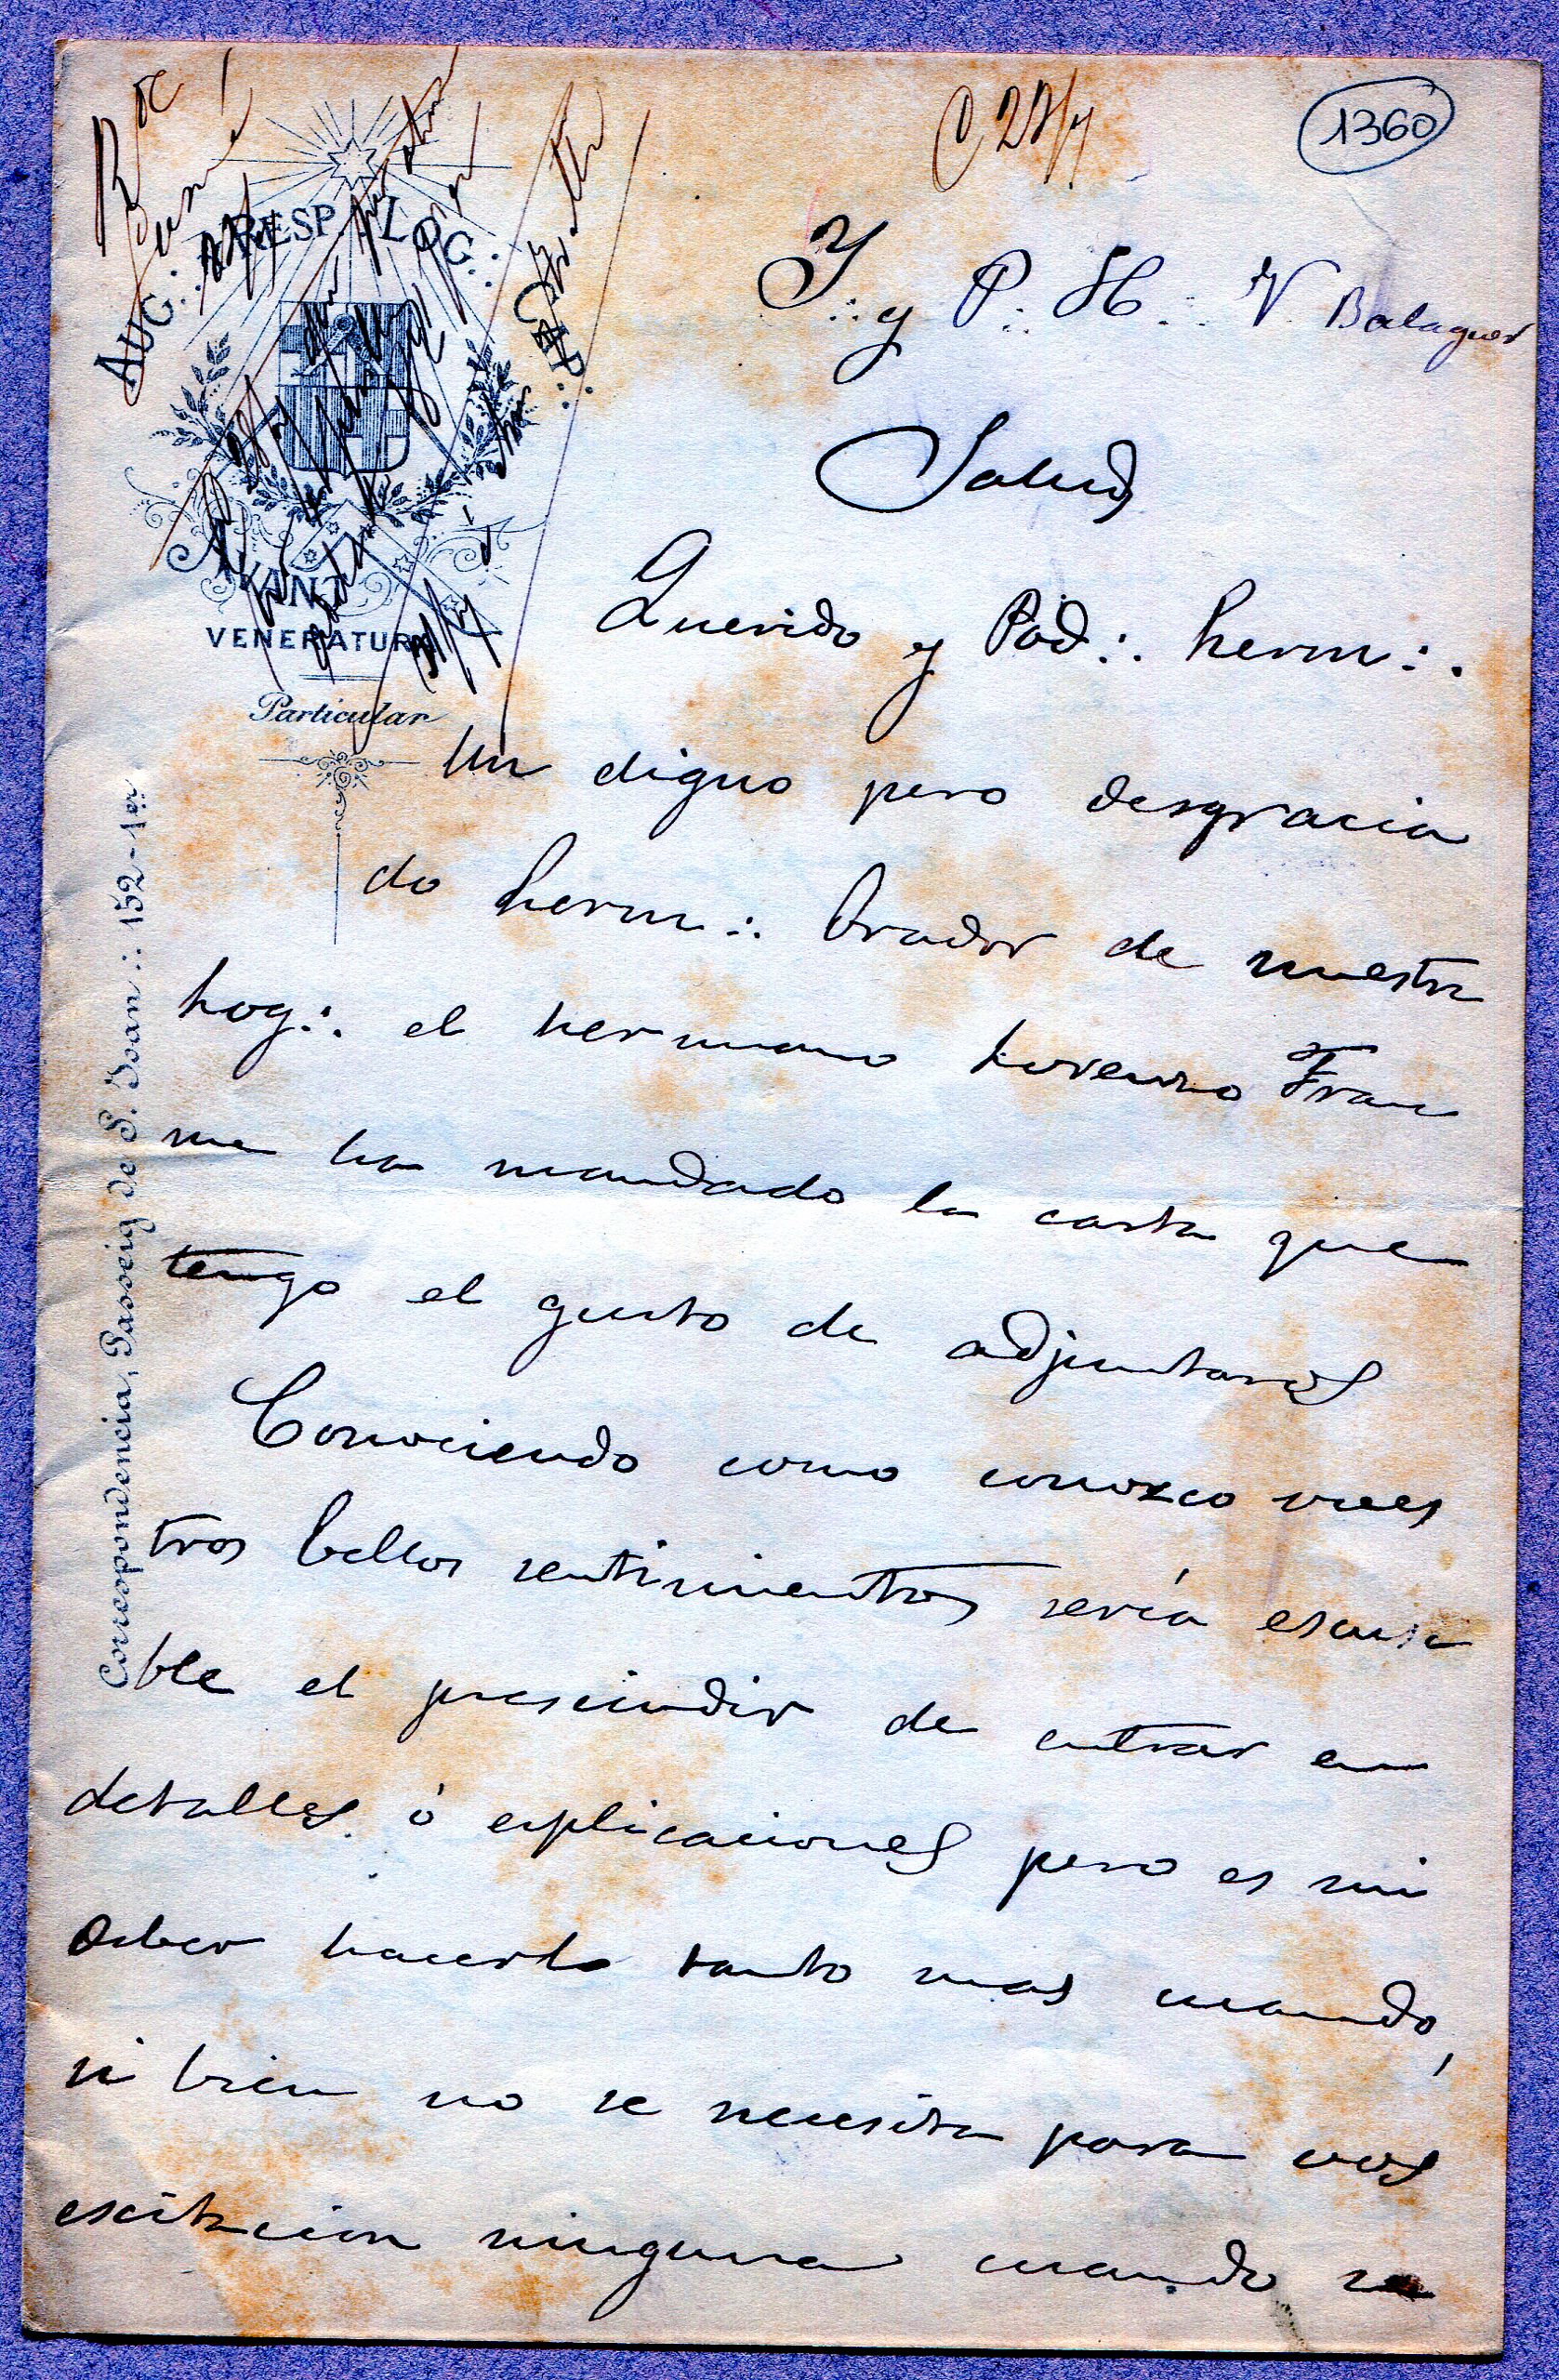 C 27/7
1360
AUG∴ RESP∴ LOG∴ CAP∴
AVANT
VENERATURA
Particular
Correspondencia, Passeig de S. Joan∴ 152-1er
I∴ y P∴ H∴ V Balaguer
Salud
Querido y Pod∴ herm∴
Un digno pero desgracia
do herm∴ Orador de nuestra
Log∴ el hermano Lorenzo Frau
me ha mandado la carta que
tengo el gusto de adjuntaros
Conociendo como conozco vues
tros bellos sentimientos sería escusa
ble el prescindir de entrar en
detalles ó esplicaciones pero es mi
deber hacerlo tanto mas cuando,
si bien no se necesita para vos
escitacion ninguna cuando se